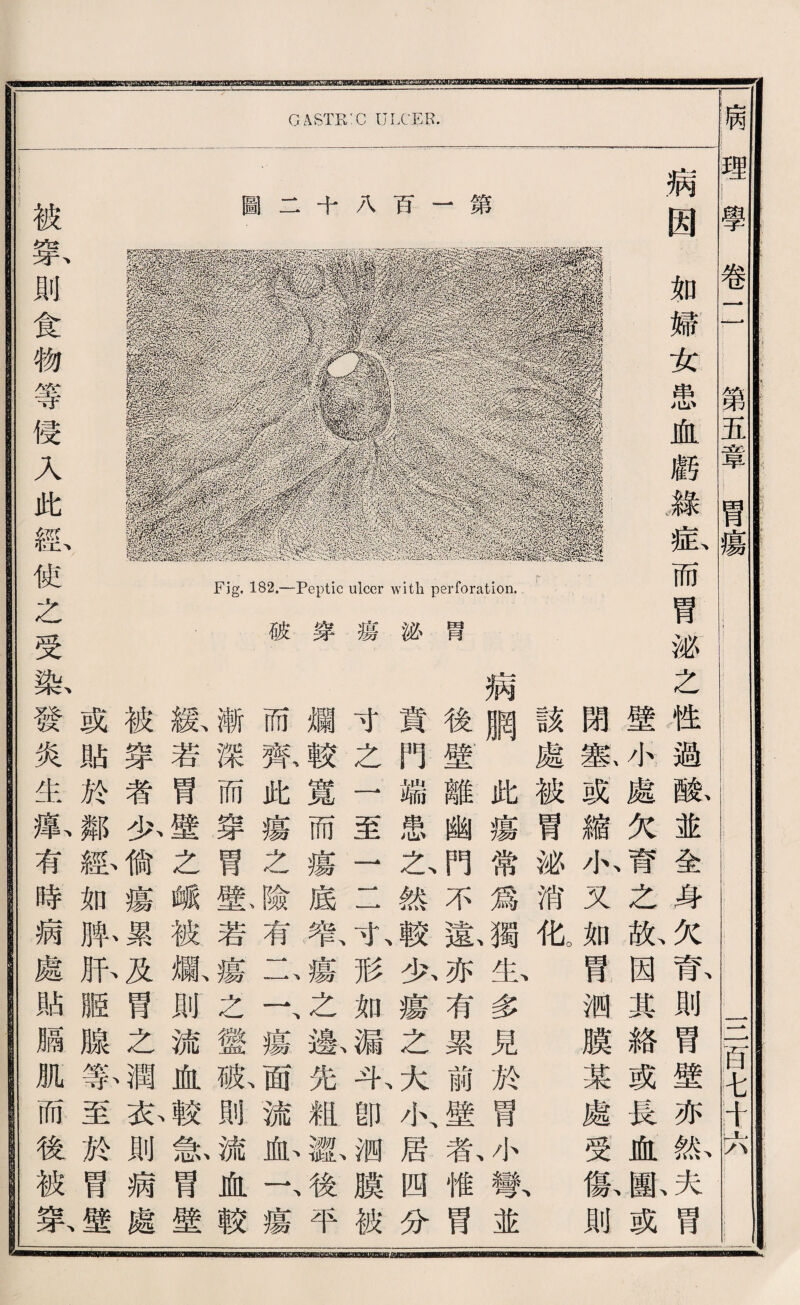 GASTRIC ULCER.
病理學 卷二 第五章 胃瘍 三百七十六
病因 如婦女患血虧綠症、而胃泌之性過酸、並全身欠育、則胃壁亦然、夫胃
壁小處欠育之故、因其絡或長血團、或
閉塞、或縮小、又如胃泗膜某處受傷、則
該處被胃泌消化。
病𦜇 此瘍常爲獨生、多見於胃小彎、並
後壁離幽門不遠、亦有累前壁者、惟胃
賁門端患之、然較少、瘍之大小、居四分
寸之一至一二寸、形如漏斗、卽泗膜被
爛較寬而瘍底窄、瘍之邊、先粗澀、後平
而齊、此瘍之險有二、一、瘍面流血、一、瘍
漸深而穿胃壁、若瘍之𧖅破、則流血較
緩、若胃壁之䘑被爛、則流血較急、胃壁
被穿者少、倘瘍累及胃之潤衣、則病處
或貼於鄰經、如脾、肝、胵腺等、至於胃壁
被穿、則食物等侵入此經、使之受染、發炎生癉、有時病處貼膈肌而後被穿、
第一百八十二圖
Fig. 182.—Peptic ulcer with perforation.
胃泌瘍穿破